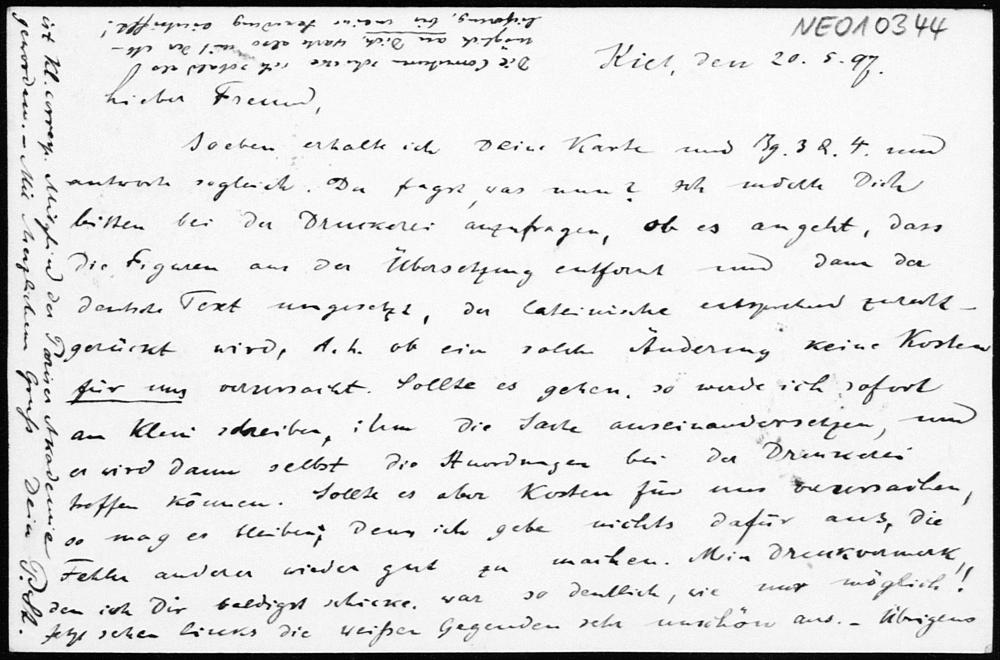 NEO10344
Kiel, den 20. 5. 97.
Lieber Freund,
Soeben erhalte ich Deine Karte und Bg. 3 & 4. und
antworte sogleich. Du fragst, was nun? Ich möchte Dich
bitten bei der Druckerei anzufragen, ob es angeht, dass
die Figuren aus der Übersetzung entfernt und dann der
deutsche Text umgesetzt, der lateinische entsprechend zurecht-
gerückt wird, d.h. ob eine solche Änderung keine Kosten
für uns verursacht. Sollte es gehen, so werde ich sofort
an Klein schreiben, ihm die Sache auseinandersetzen, und
er wird dann selbst die Anordnungen bei der Druckerei
treffen können. Sollte es aber Kosten für uns verursachen,
so mag es bleiben; denn ich gebe nichts dafür aus, die
Fehler anderer wieder gut zu machen. Mein Druckvermerk,
den ich Dir baldigst schicke, war so deutlich, wie nur möglich!!
Jetzt sehen links die weißen Gegenden sehr unschön aus. – Übrigens
ist Kl. corresp. Mitglied der Pariser Akademie
geworden. – Mit herzlichem Gruß Dein P. St.
Die Correkturen schicke ich sobald als
möglich an Dich, warte also mit der Ab-
lieferung, bis meine Sendung eintrifft!